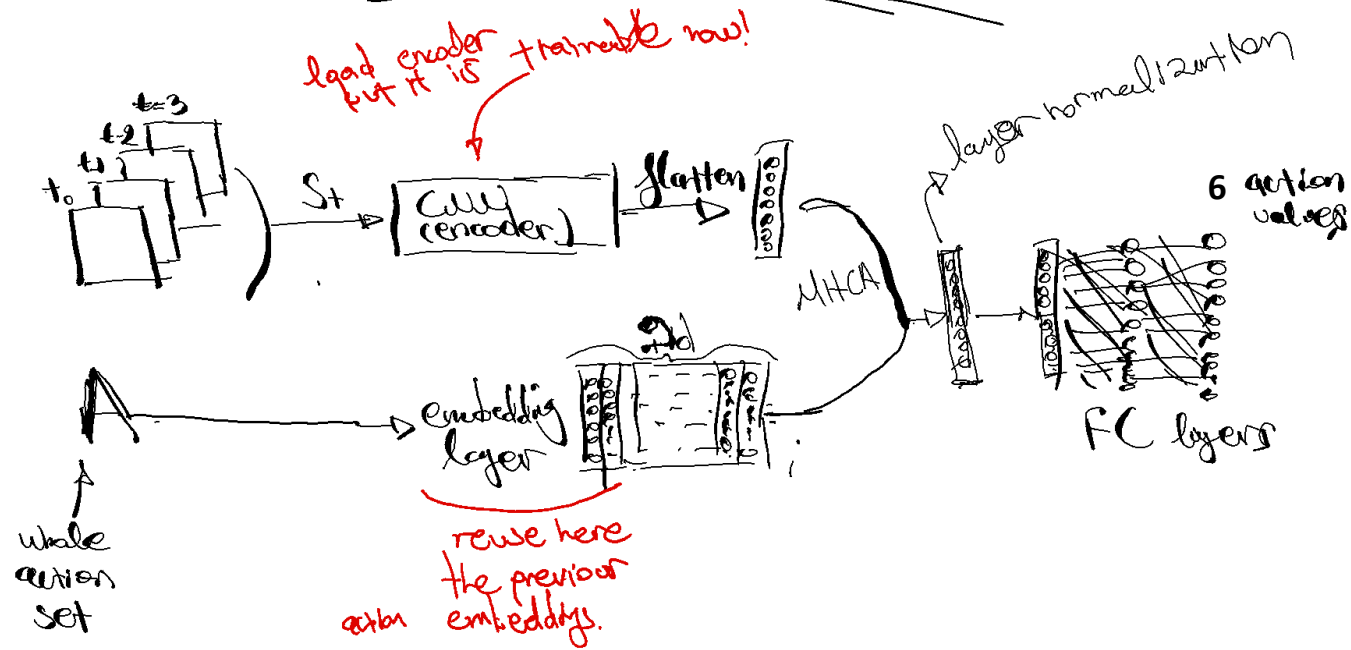 load encoder
but it is trainable now!
t=3
t-2
t-1
t₀
St
CNN
(encoder)
flatten
MHCA
layer normalization
6 action
values
FC layers
A
embedding
layer
whole
action
set
reuse here
the previour
action embeddgs.